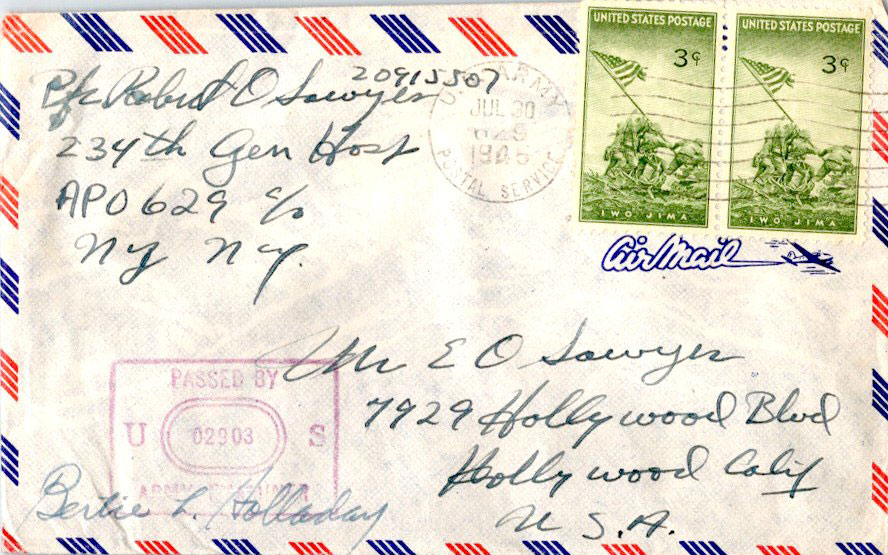 20915507
Pfc Robert O Sawyer
234th Gen Hosp
APO 629 c/o
Ny Ny.
U.S. ARMY
JUL 30
1945
POSTAL SERVICE
UNITED STATES POSTAGE
3¢
IWO JIMA
UNITED STATES POSTAGE
3¢
IWO JIMA
Air Mail
Mr E O Sawyer
7929 Hollywood Blvd
Hollywood Calif
U.S.A.
PASSED BY
U 02903 S
ARMY EXAMINER
Bertie L. Holladay